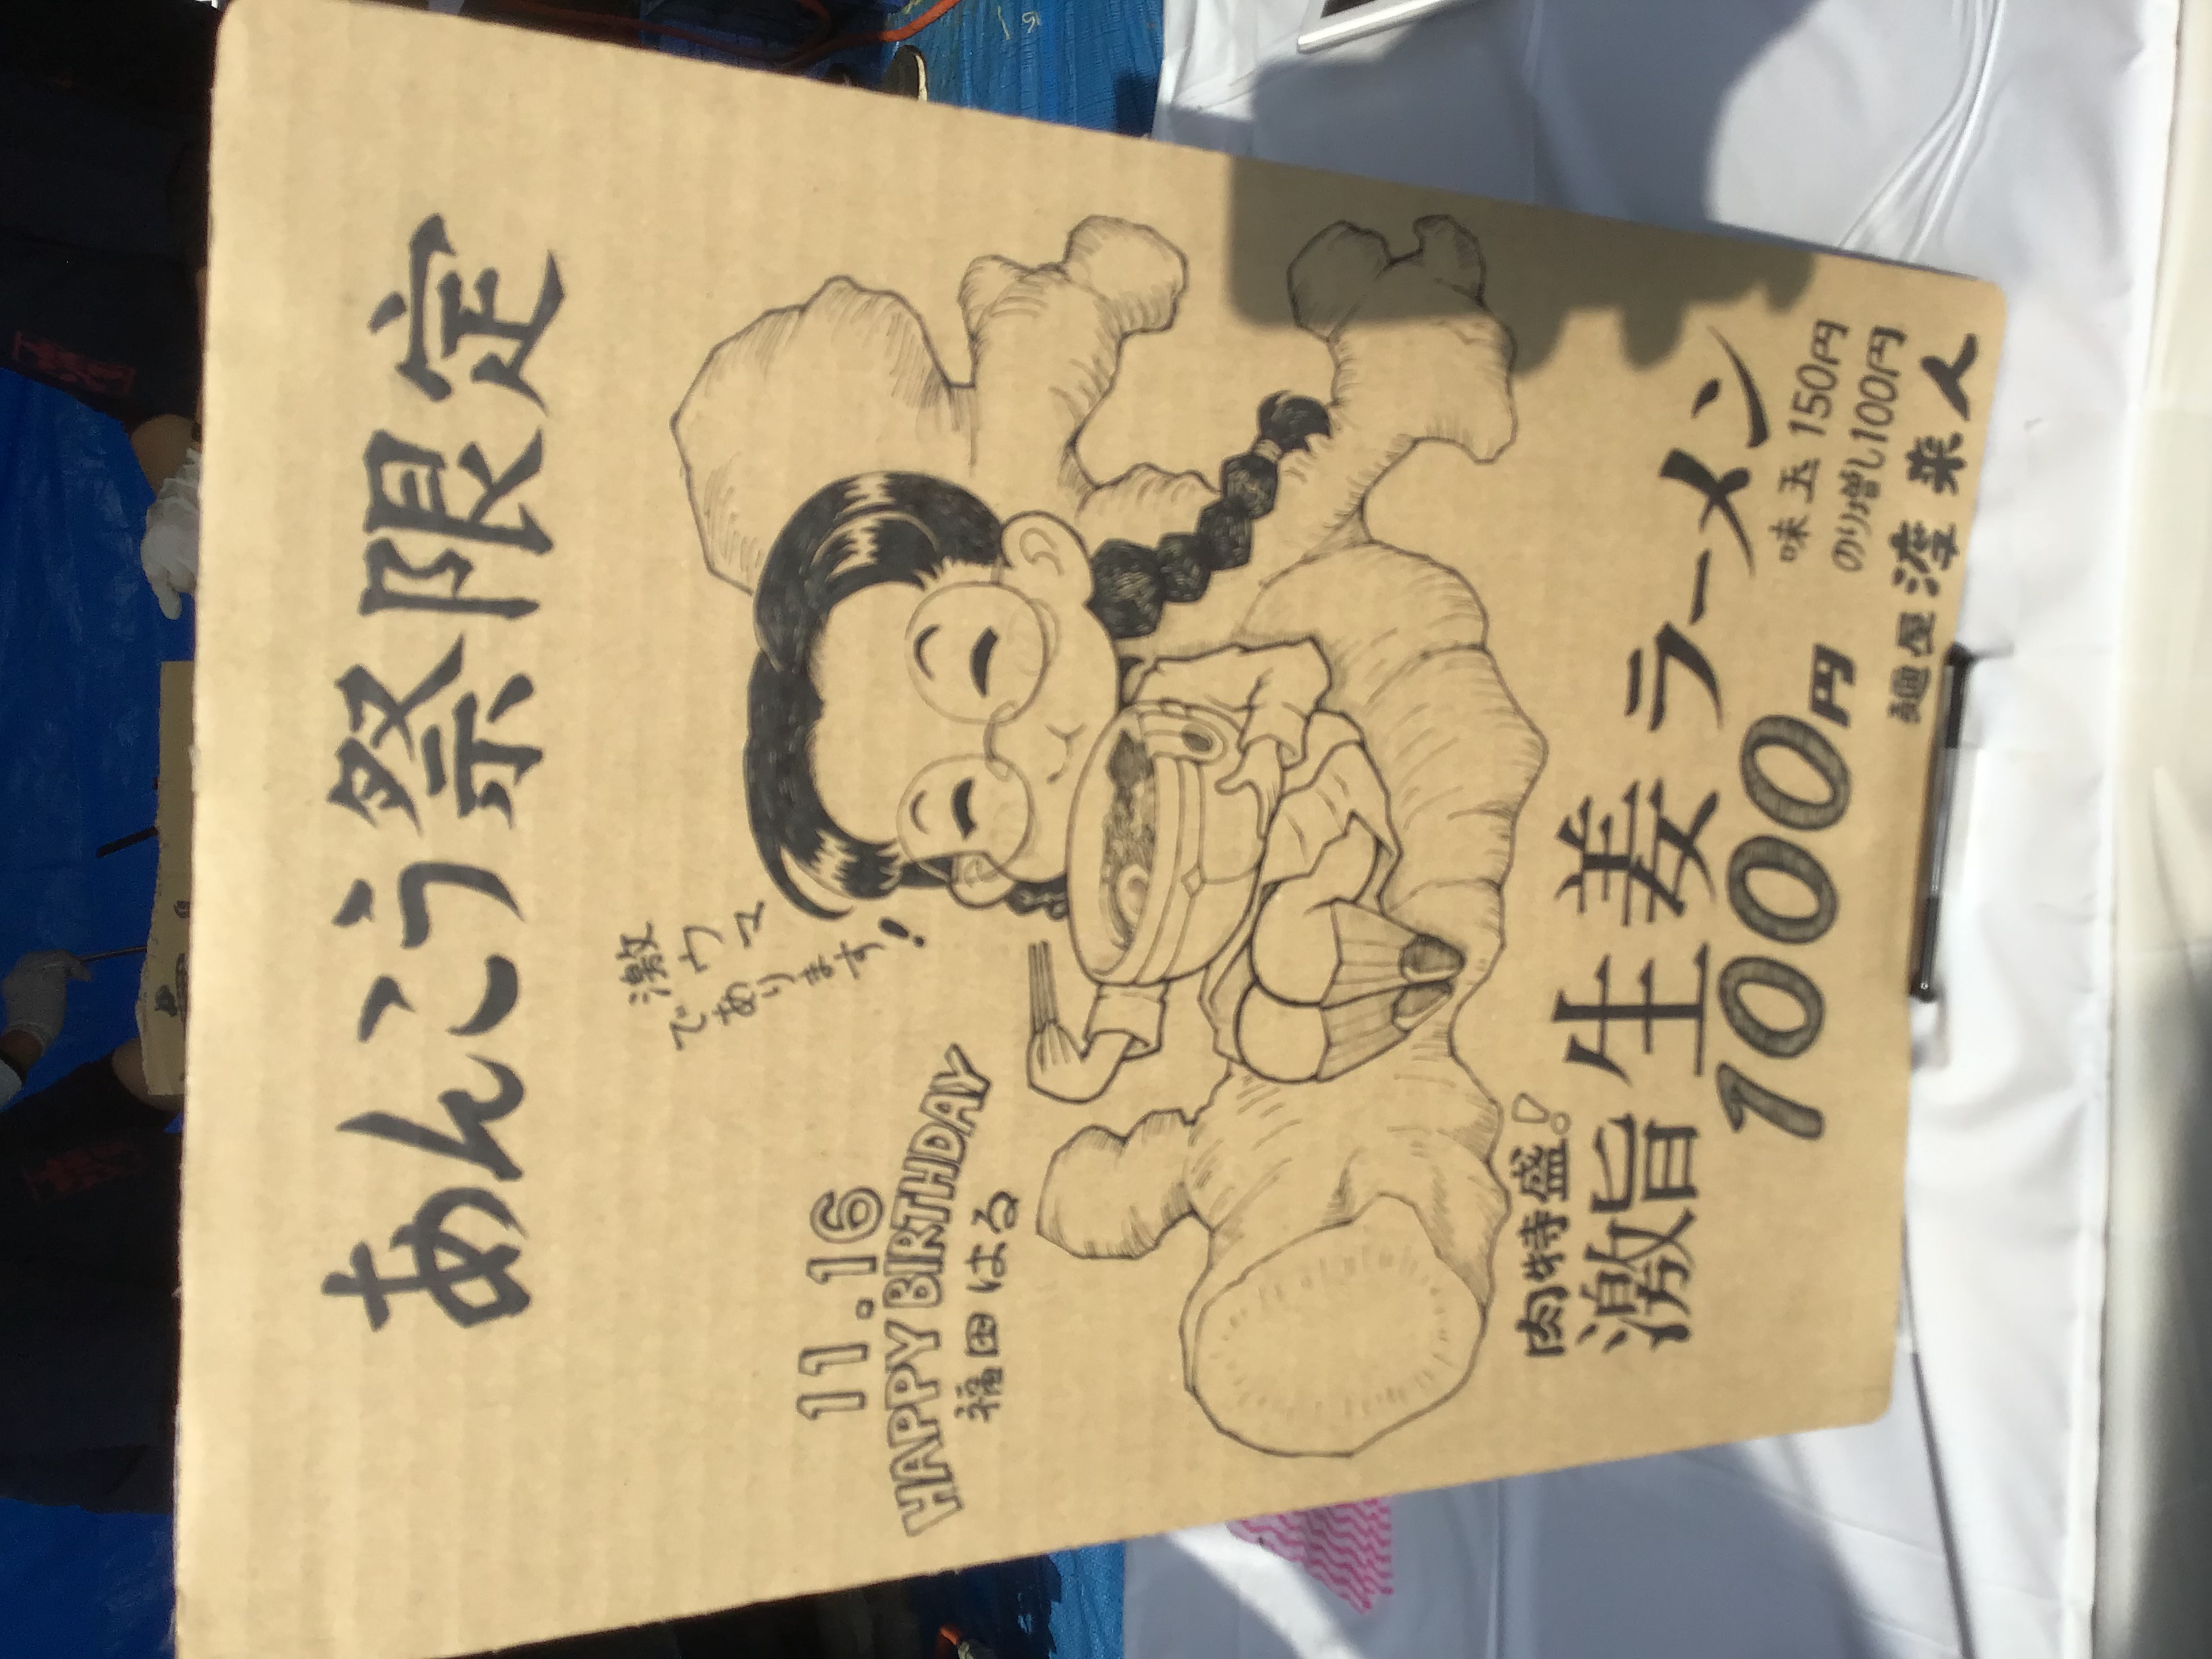 あんこう祭限定
激ウマ
であります!
11.16
HAPPY BIRTHDAY
福田はる
肉特盛!
激旨生姜ラーメン
1000円
味玉 150円
のり増し100円
麺屋
人